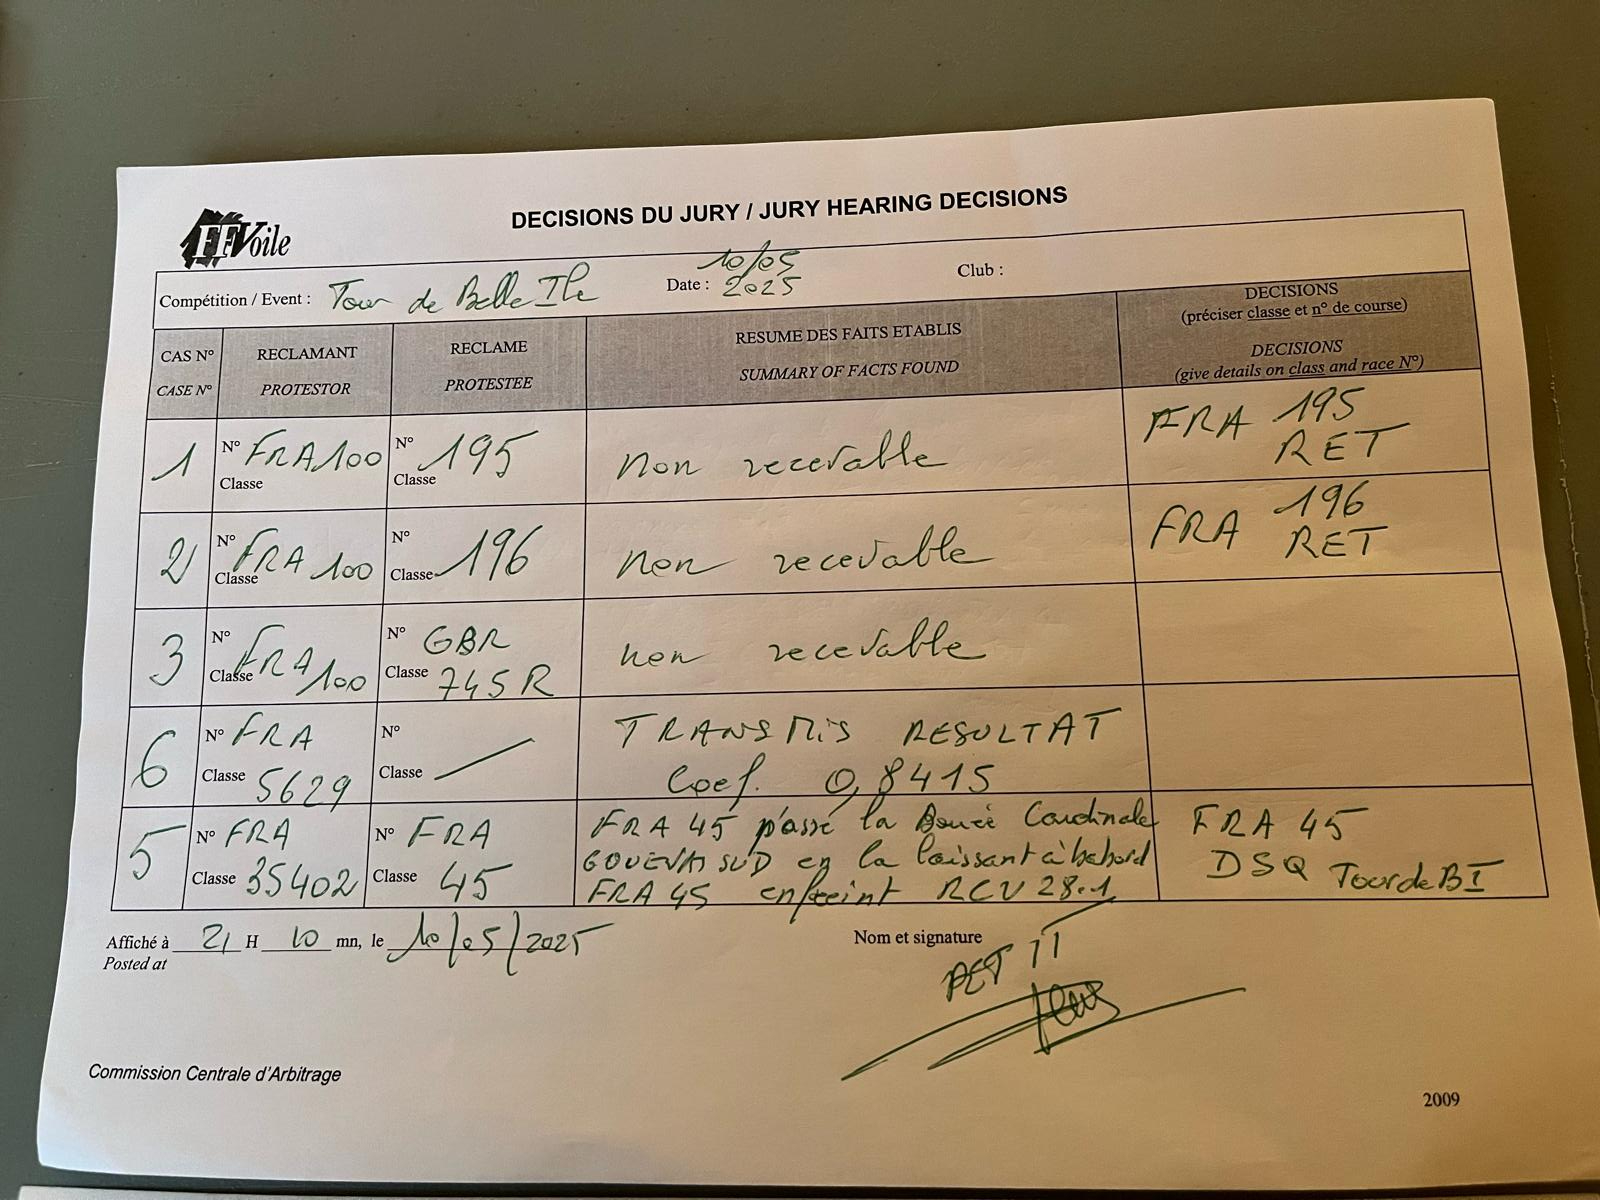 FFVoile
DECISIONS DU JURY / JURY HEARING DECISIONS
Compétition / Event : Tour de Belle Ile
Date : 10/05 2025
Club :
CAS N° CASE N°
RECLAMANT PROTESTOR
RECLAME PROTESTEE
RESUME DES FAITS ETABLIS
SUMMARY OF FACTS FOUND
DECISIONS
(préciser classe et n° de course)
DECISIONS
(give details on class and race N°)
1 N° FRA 100 Classe N° 195 Classe non recevable FRA 195 RET
2 N° FRA 100 Classe N° 196 Classe non recevable FRA 196 RET
3 N° FRA 100 Classe N° GBR Classe 745 R non recevable
6 N° FRA Classe 5629 N° Classe TRANSMIS RESULTAT
Coef. 0,8415
5 N° FRA Classe 35402 N° FRA Classe 45 FRA 45 passé la Bouée Cardinale
SUD en la laissant à babord
FRA 45 enfreint RCV 28.1
FRA 45
DSQ Tour de BI
Affiché à 21 H 10 mn, le 10/05/2025
Posted at
Nom et signature
Commission Centrale d'Arbitrage
2009